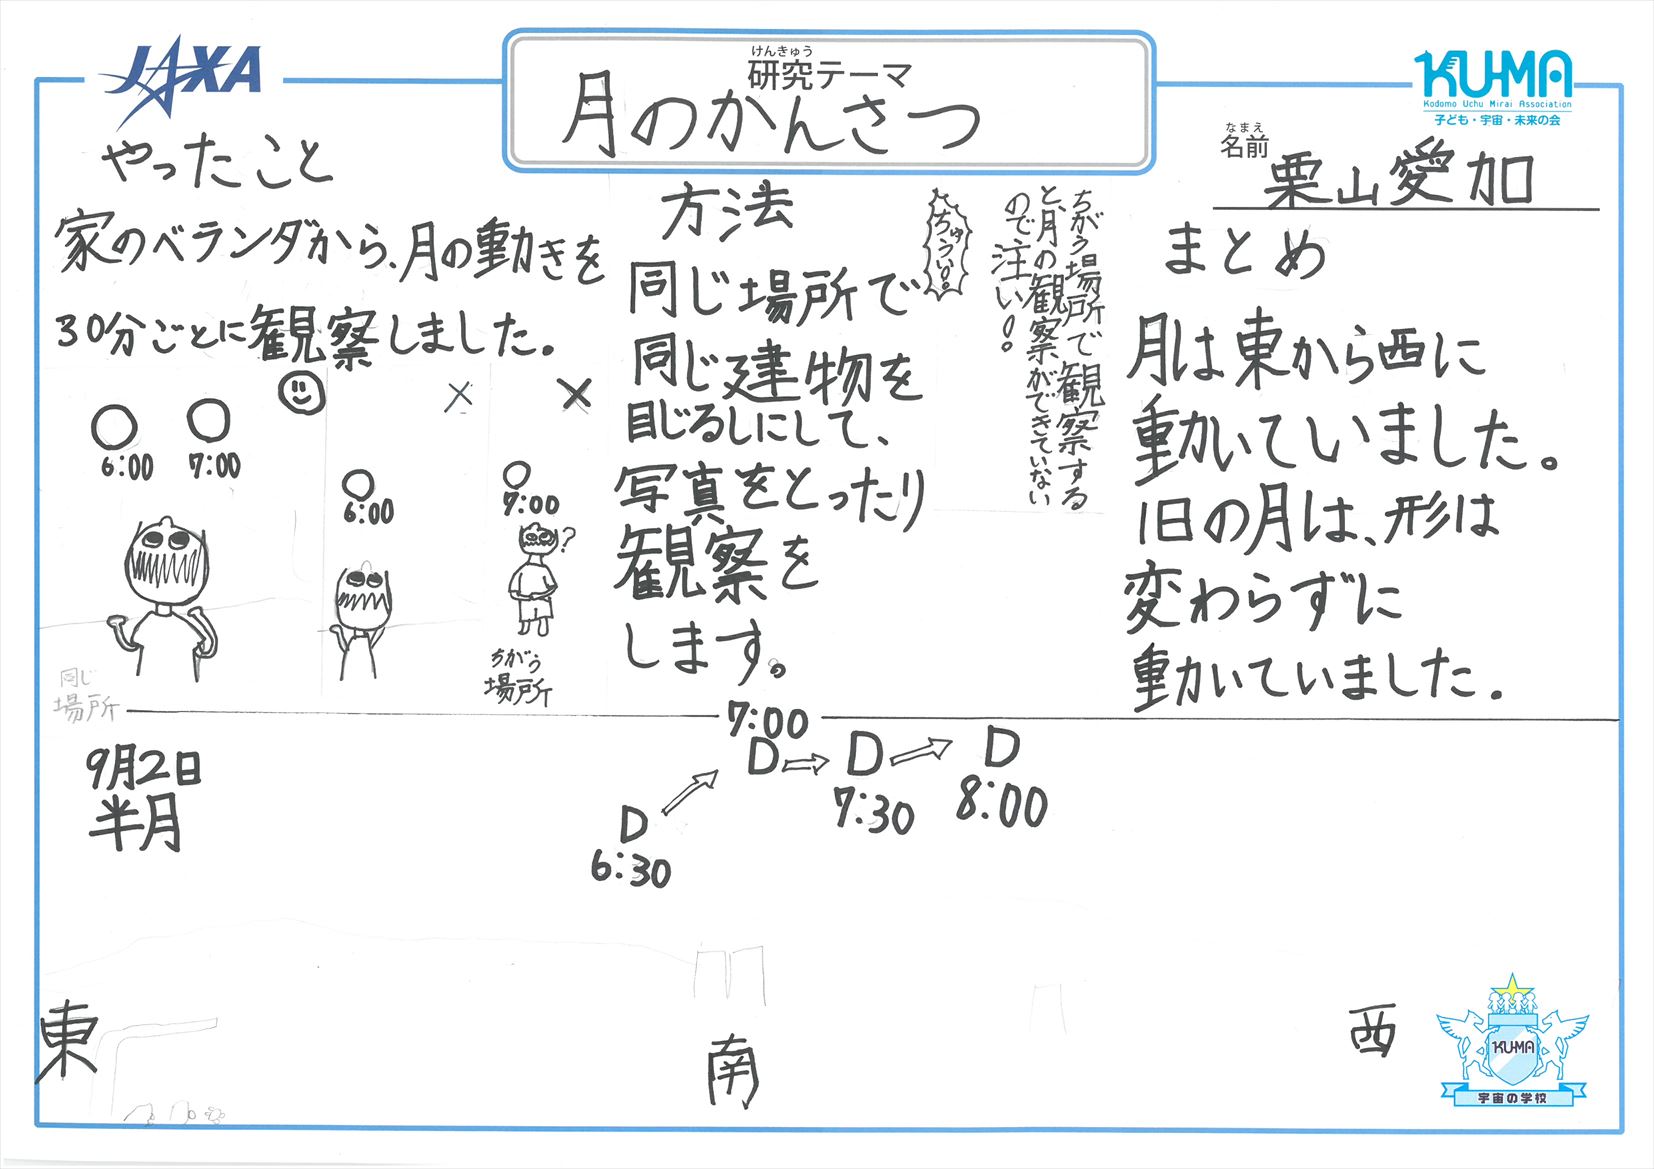 JAXA
けんきゅう
研究テーマ
月のかんさつ
KU-MA
Kodomo Uchu Mirai Association
子ども・宇宙・未来の会
なまえ
名前
栗山愛加
やったこと
家のベランダから、月の動きを
30分ごとに観察しました。
6:00
7:00
6:00
7:00
?
ちがう
場所
同じ
場所
方法
同じ場所で
同じ建物を
目じるしにして、
写真をとったり
観察を
します。
ちゅうい!!
ちがう場所で観察する
と、月の観察ができていない
ので注い!!
まとめ
月は東から西に
動いていました。
1日の月は、形は
変わらずに
動いていました。
9月2日
半月
6:30
7:00
7:30
8:00
東
南
西
KU-MA
宇宙の学校